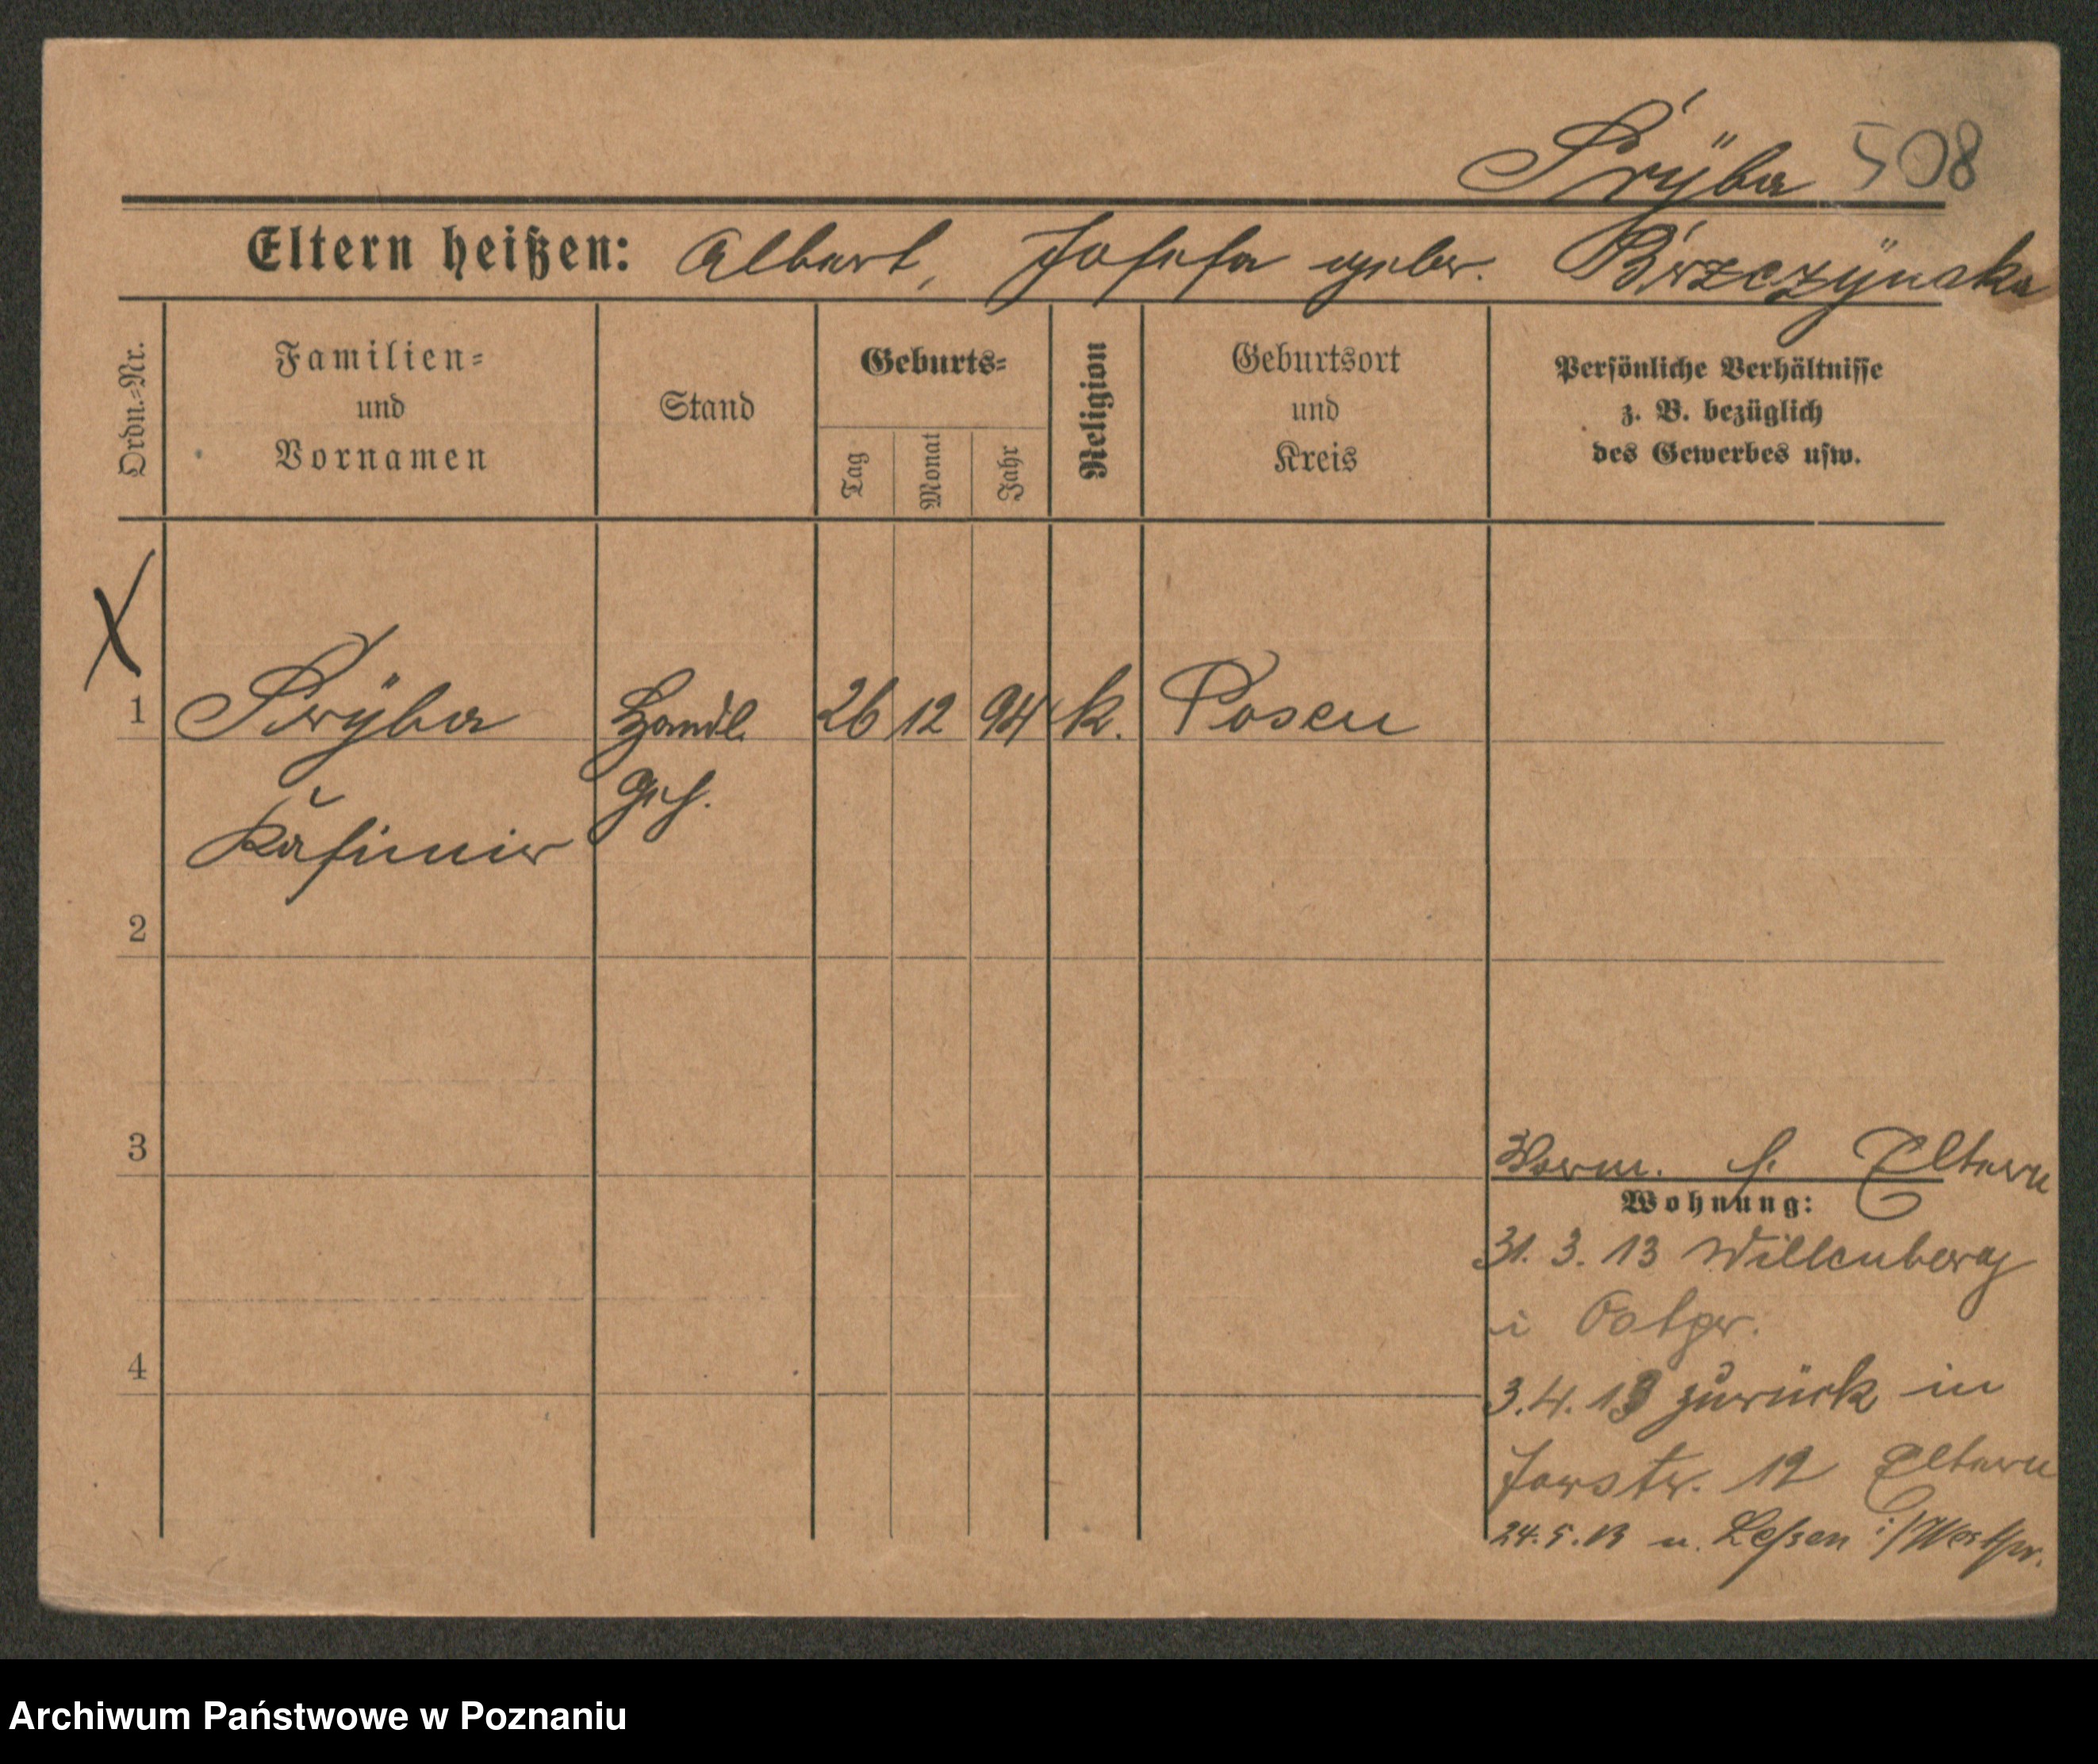 Srÿba 508
Eltern heißen: Albert, Josefa geber. Brzczÿnska
Ordn.=Nr.
Familien=
und
Vornamen
Stand
Geburts=
Tag
Monat
Jahr
Religion
Geburtsort
und
Kreis
Persönliche Verhältnisse
z. B. bezüglich
des Gewerbes usw.
X
1 Srÿba Handl. 26 12 94 k. Posen
Geh.
Kasimir
2
3
4
Vorm. s. Eltern
Wohnung:
31. 3. 13 Willenberg
i Ostpr.
3. 4. 13 zurück in
Forstr. 12 Eltern
24. 5. 13 n. Leßen i/Westpr.
Archiwum Państwowe w Poznaniu